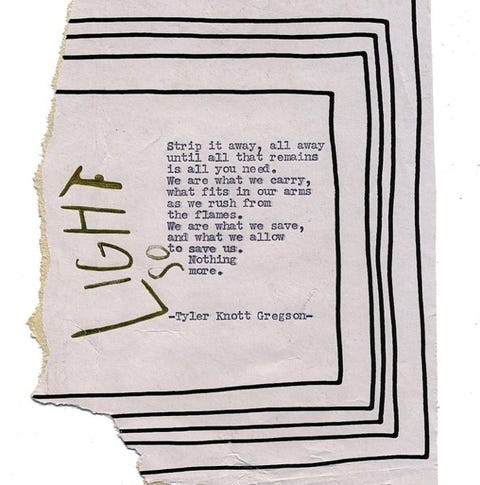 LIGHT
SO
Strip it away, all away
until all that remains
is all you need.
We are what we carry,
what fits in our arms
as we rush from
the flames.
We are what we save,
and what we allow
to save us.
Nothing
more.
-Tyler Knott Gregson-